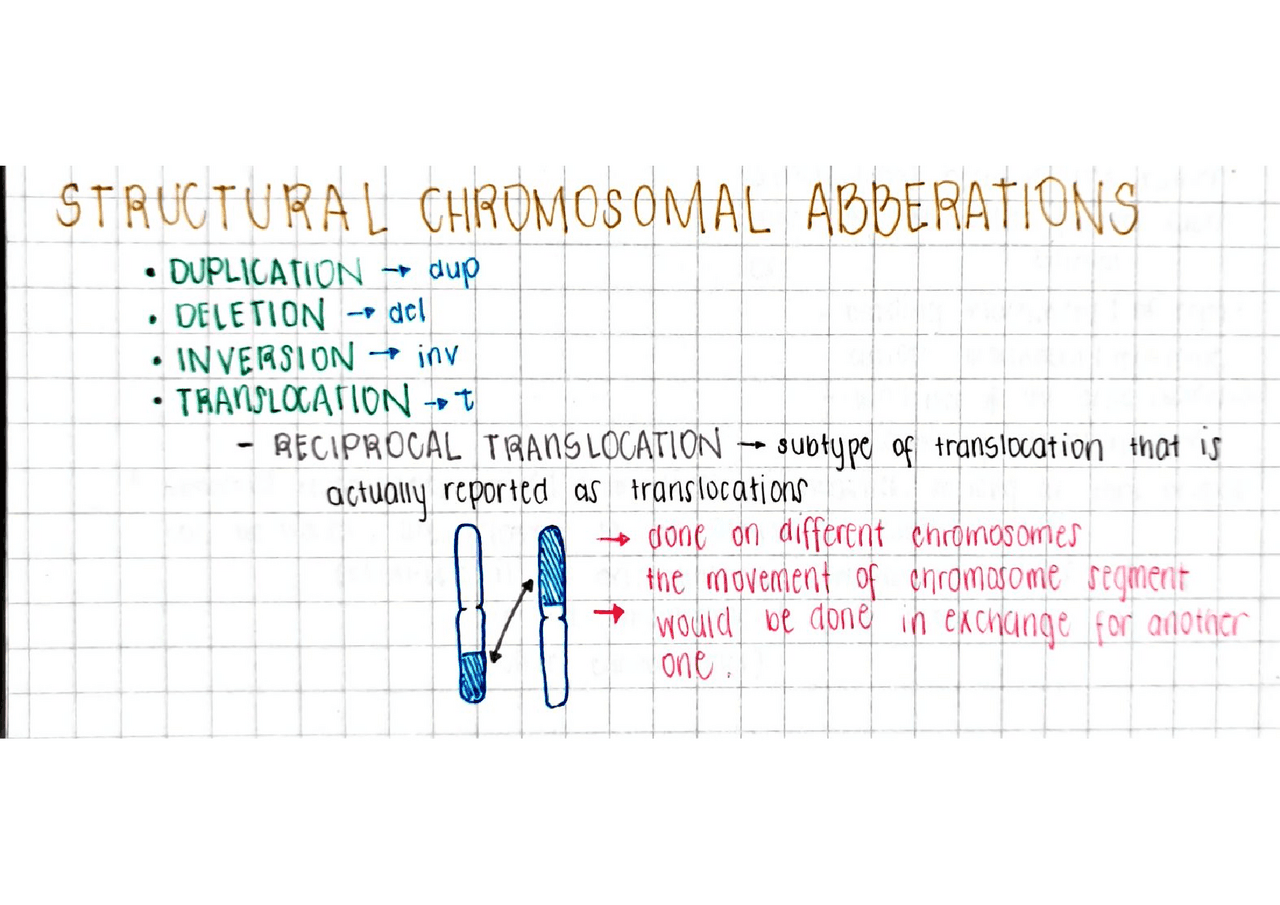 STRUCTURAL CHROMOSOMAL ABBERATIONS
• DUPLICATION → dup
• DELETION → del
• INVERSION → inv
• TRANSLOCATION → t
- RECIPROCAL TRANSLOCATION → subtype of translocation that is
actually reported as translocations
→ done on different chromosomes
the movement of chromosome segment
→ would be done in exchange for another
one.